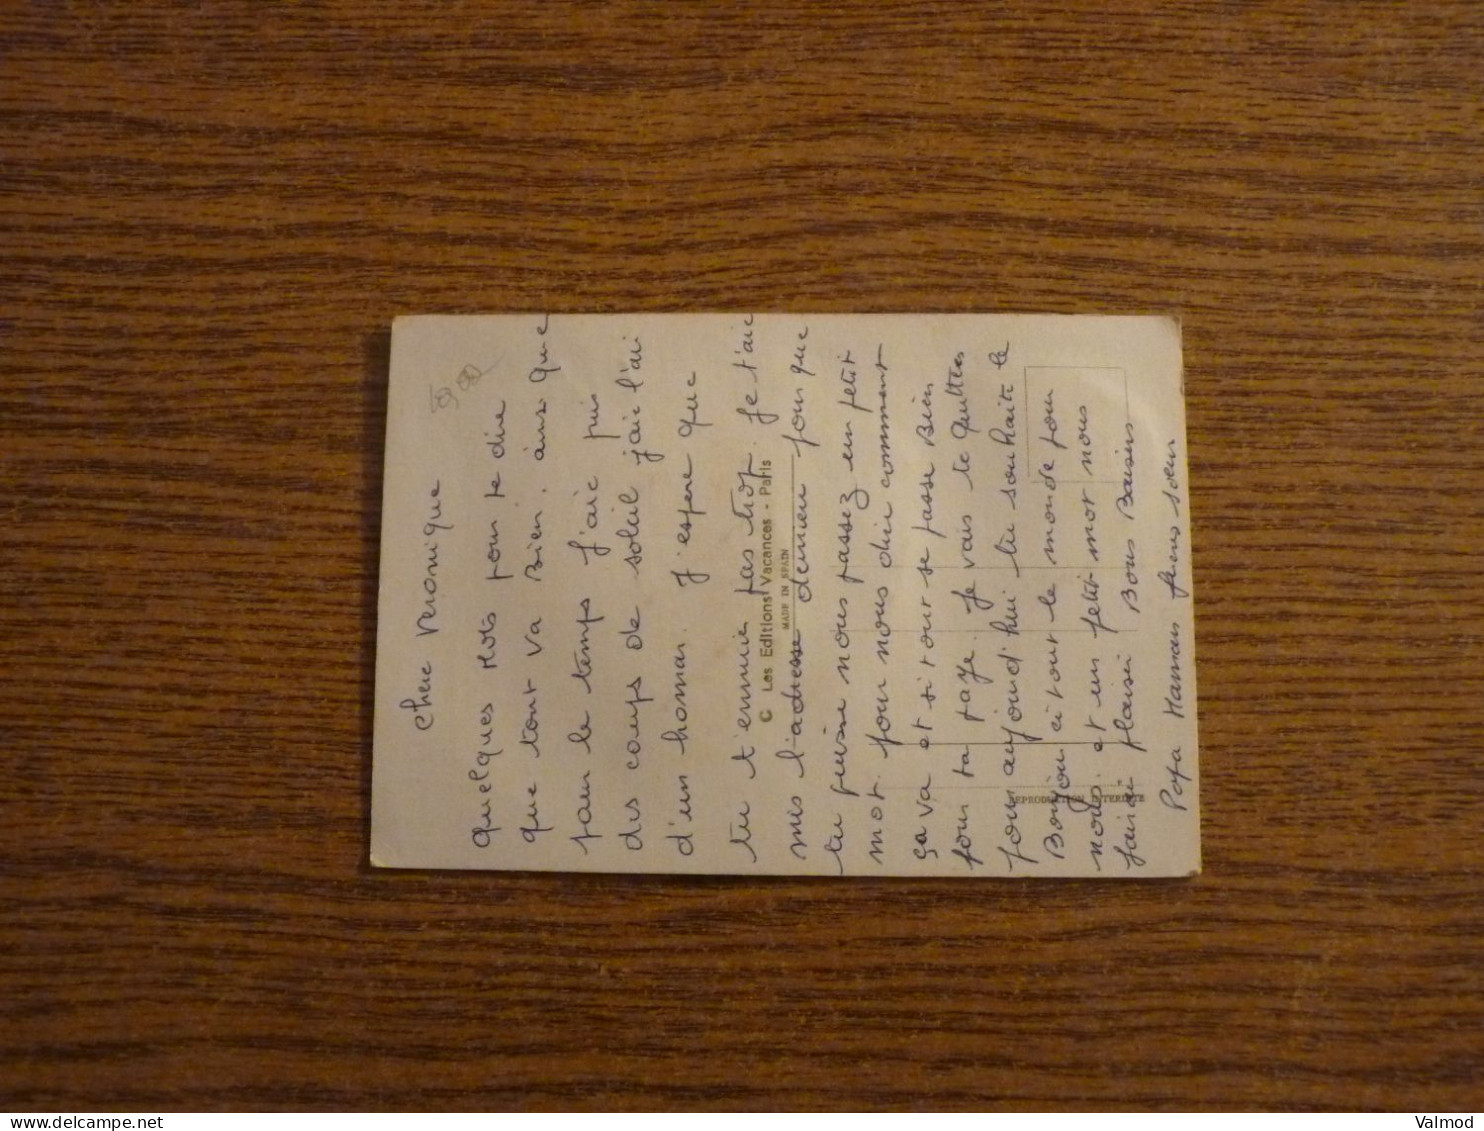 chere Veronique
quelques Mots pour te dire
que tout va Bien. ainsi que
pour le temps j'aie pris
des coups de soleil j'aie l'ai
d'un homar. J'espere que
tu t'ennuie pas trop. Je t'aie
© Les Editions Vacances - Paris
MADE IN SPAIN
mis l'adresse dernier pour que
tu puisse nous passez un petit
mot. pour nous dire comment
ça va et si tout se passe Bien
pour ta paye. Je vais te quitter
pour aujourd'hui tu souhaite le
REPRODUCTION INTERDITE
Bonjour a tout le monde pour
nous. et un petit mot nous
fairai plaisir Bons Baisers
Papa Maman frens soeur
Valmod